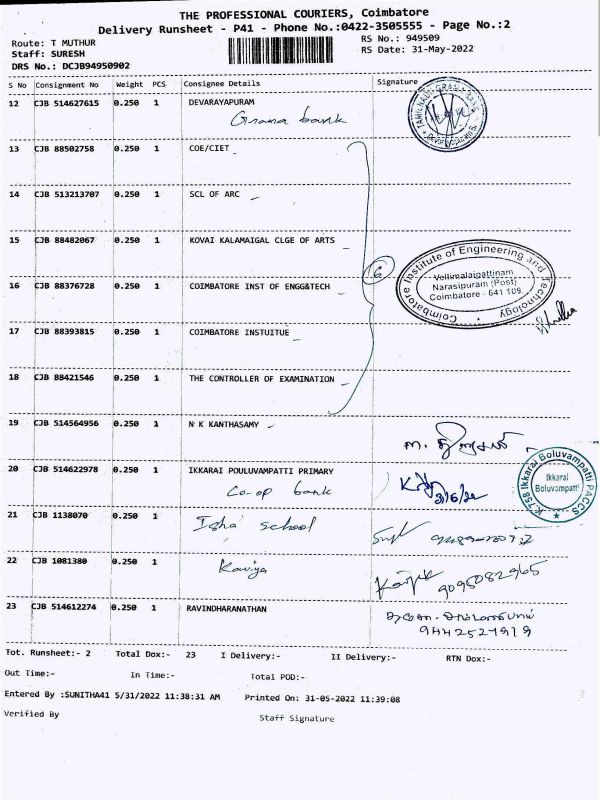 THE PROFESSIONAL COURIERS, Coimbatore
Delivery Runsheet - P41 - Phone No.:0422-3505555 - Page No.:2
Route: T MUTHUR
Staff: SURESH
DRS No.: DCJB94950902
RS No.: 949509
RS Date: 31-May-2022
S No Consignment No Weight PCS Consignee Details Signature
12 CJB 514627615 0.250 1 DEVARAYAPURAM
Grama bank
13 CJB 88502758 0.250 1 COE/CIET
14 CJB 513213707 0.250 1 SCL OF ARC
15 CJB 88482067 0.250 1 KOVAI KALAMAIGAL CLGE OF ARTS
16 CJB 88376728 0.250 1 COIMBATORE INST OF ENGG&TECH
6
Coimbatore Institute of Engineering and Technology
Vellimalaipattinam
Narasipuram (Post)
Coimbatore - 641 109.
17 CJB 88393815 0.250 1 COIMBATORE INSTUITUE
18 CJB 88421546 0.250 1 THE CONTROLLER OF EXAMINATION
19 CJB 514564956 0.250 1 N K KANTHASAMY
20 CJB 514622978 0.250 1 IKKARAI POULUVAMPATTI PRIMARY
Co-op bank
K 758 Ikkarai Boluvampatti PACCS
Ikkarai
Boluvampatti
21 CJB 1138070 0.250 1 Isha school
22 CJB 1081380 0.250 1 Kaviya
9095082965
23 CJB 514612274 0.250 1 RAVINDHARANATHAN
9442521919
Tot. Runsheet:- 2 Total Dox:- 23 I Delivery:- II Delivery:- RTN Dox:-
Out Time:- In Time:- Total POD:-
Entered By :SUNITHA41 5/31/2022 11:38:31 AM Printed On: 31-05-2022 11:39:08
Verified By Staff Signature